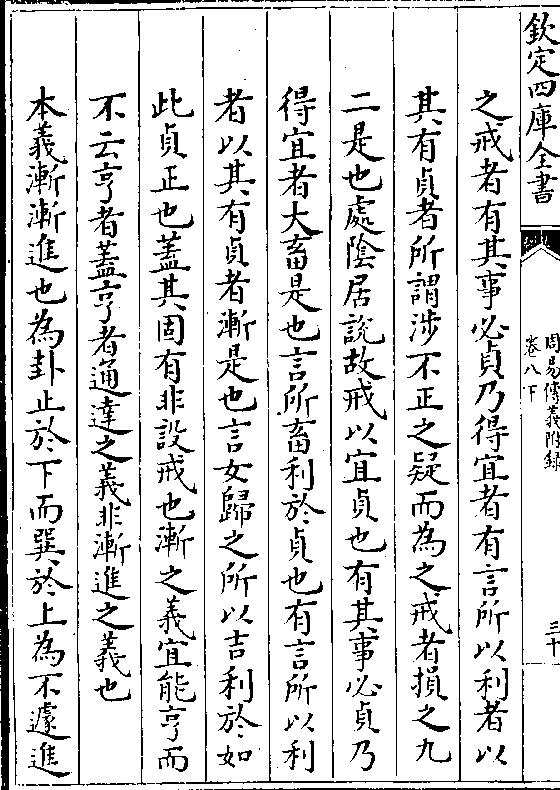 欽定四庫全書
周易傳義附録
卷八下
三十
之戒者有其事必貞乃得宜者有言所以利者以
其有貞者所謂涉不正之疑而為之戒者損之九
二是也處陰居說故戒以宜貞也有其事必貞乃
得宜者大畜是也言所畜利於貞也有言所以利
者以其有貞者漸是也言女歸之所以吉利於如
此貞正也蓋其固有非設戒也漸之義宜能亨而
不云亨者蓋亨者通達之義非漸進之義也
本義漸漸進也為卦止於下而巽於上為不遽進